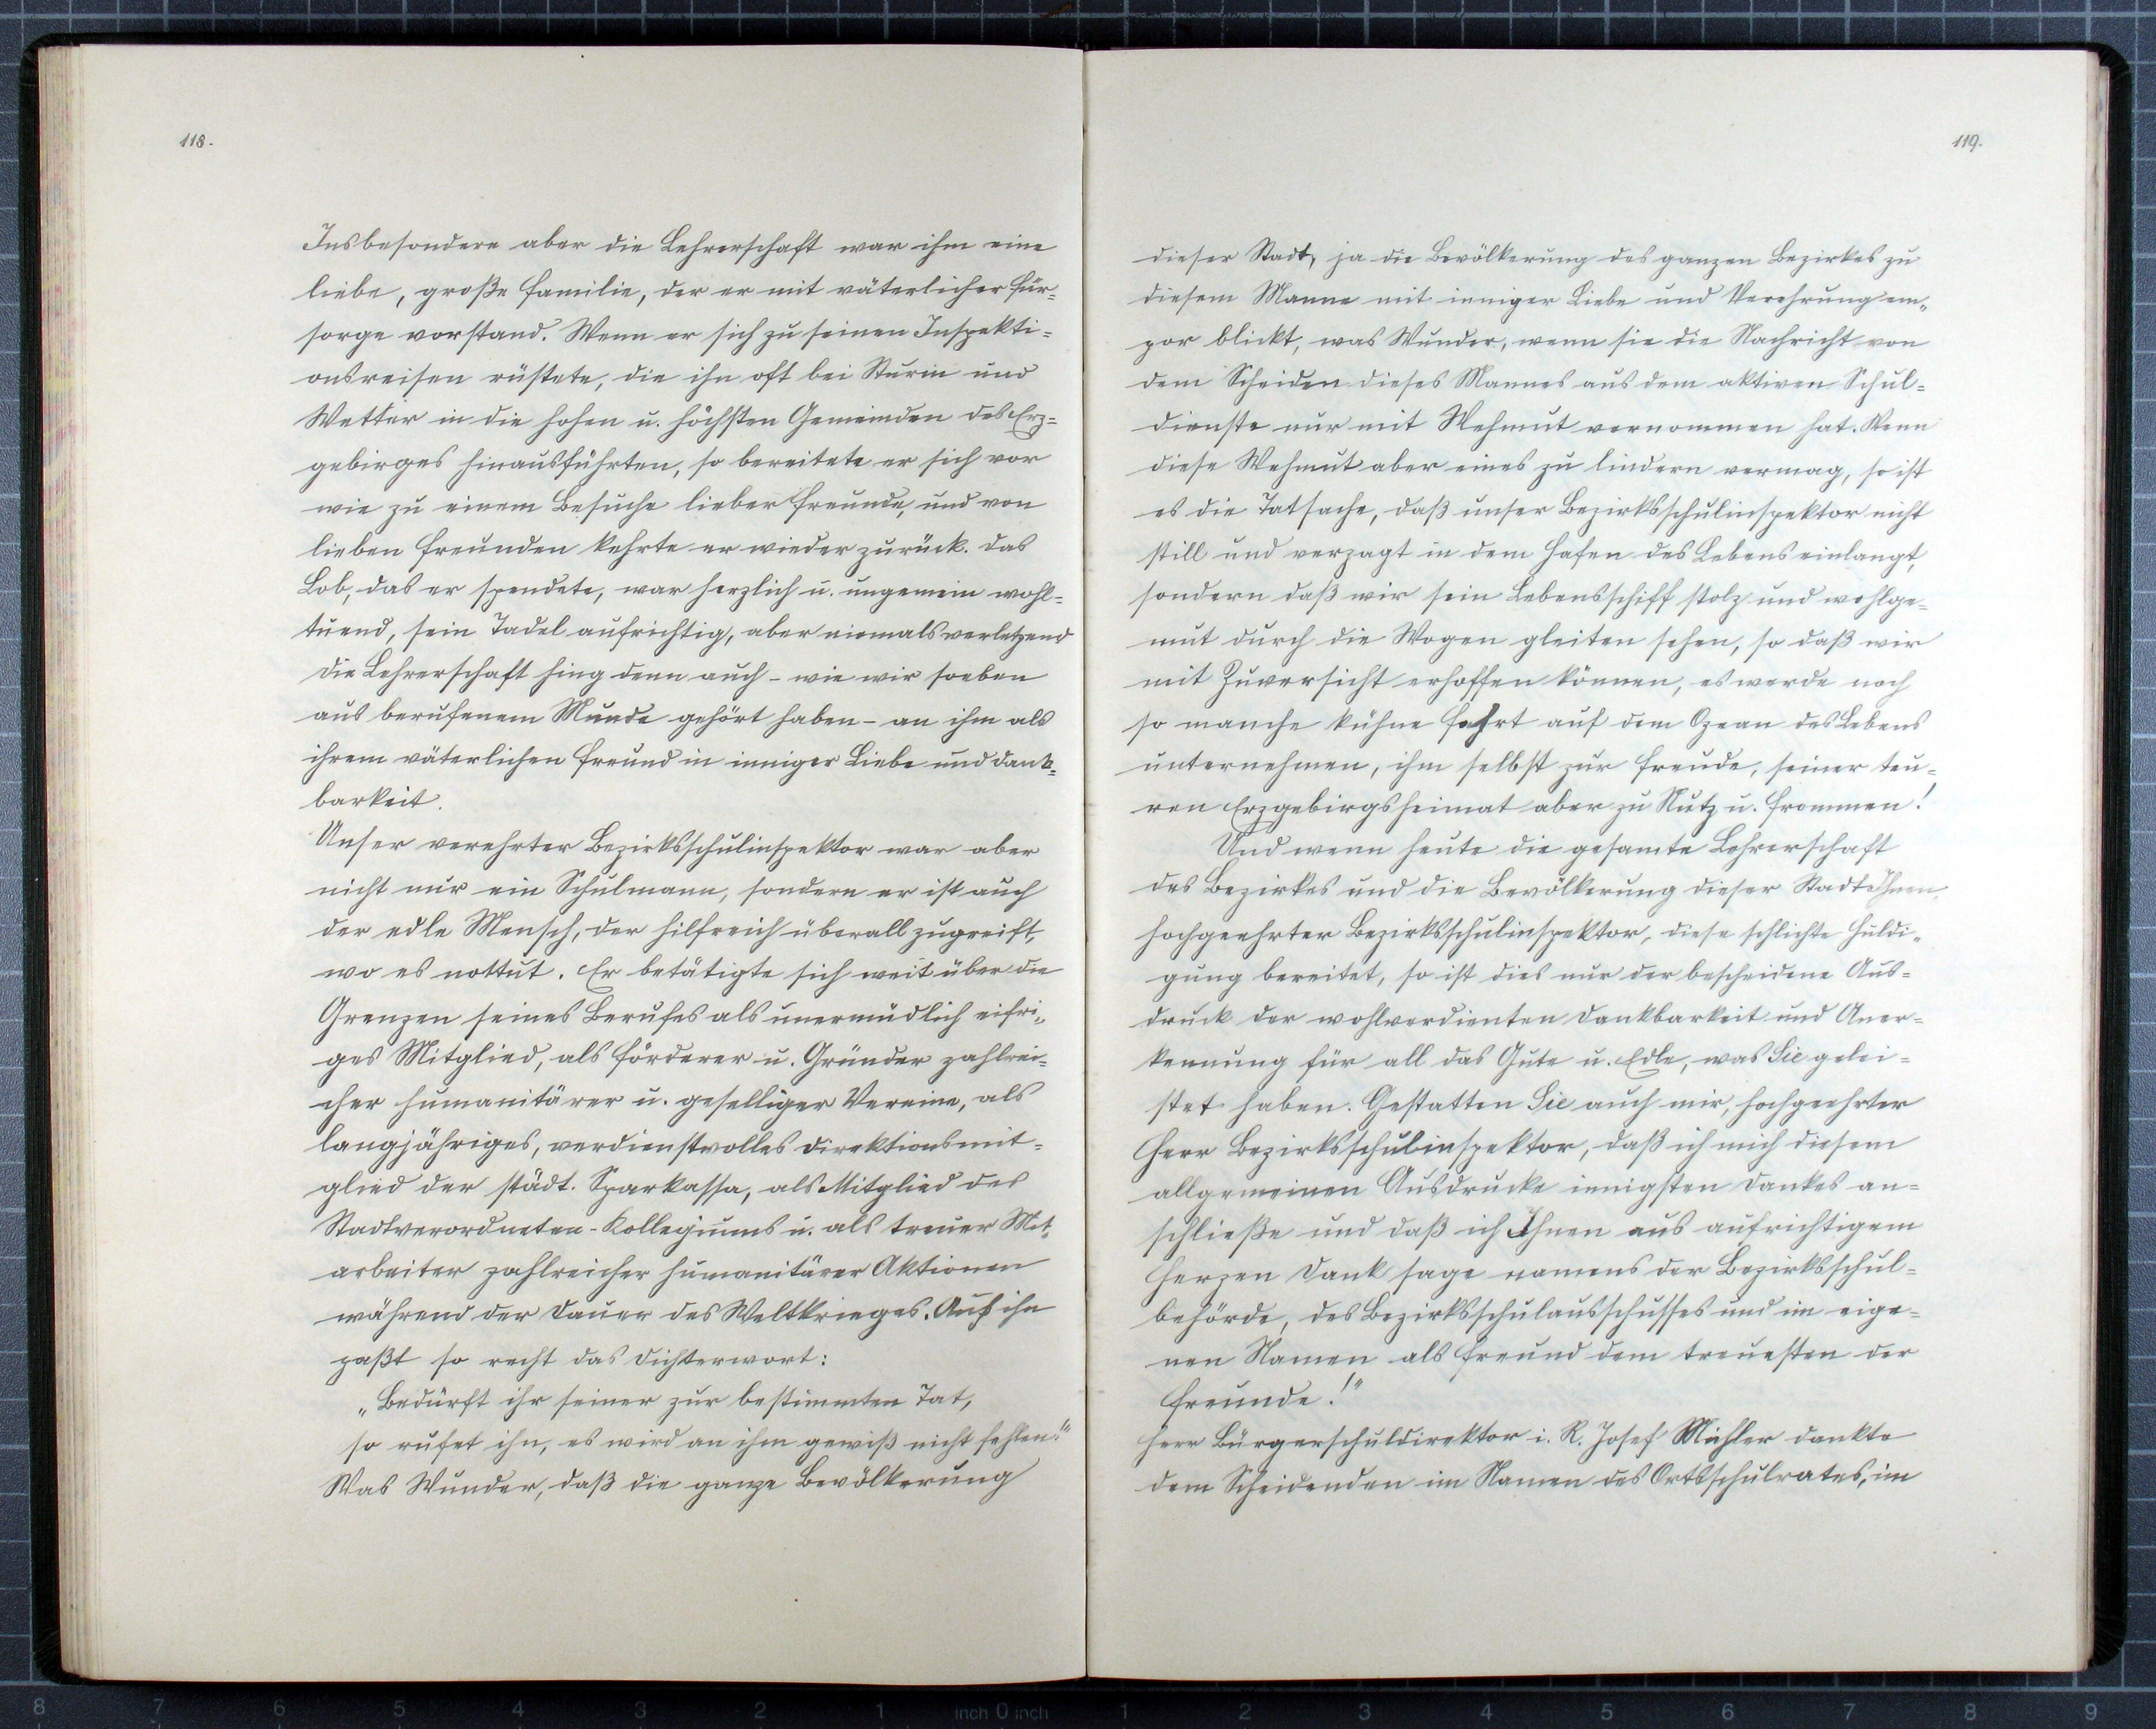 118.
Insbesondere aber die Lehrerschaft war ihm eine
liebe, große Familie, der er mit väterlicher Für-
sorge vorstand. Wenn er sich zu seinen Inspekti-
onsreisen rüstete, die ihn oft bei Sturm und
Wetter in die hohen u. höchsten Gemeinden des Erz-
gebirges hinausführten, so bereitete er sich vor
wie zu einem Besuche lieber Freunde, und von
lieben Freunden kehrte er wieder zurück. Das
Lob, das er spendete, war herzlich u. ungemein wohl-
tuend, sein Tadel aufrichtig, aber niemals verletzend
Die Lehrerschaft hing denn auch - wie wir soeben
aus berufenem Munde gehört haben - an ihm als
ihrem väterlichen Freund in inniger Liebe und Dank-
barkeit.
Unser verehrter Bezirksschulinspektor war aber
nicht nur ein Schulmann, sondern er ist auch
der edle Mensch, der hilfreich überall zugreift,
wo es nottut. Er betätigte sich weit über die
Grenzen seines Berufes als unermüdlich eifri-
ges Mitglied, als Förderer u. Gründer zahlrei-
cher humanitärer u. geselliger Vereine, als
langjähriges, verdienstvolles Direktionsmit-
glied der städt. Sparkassa, als Mitglied des
Stadtverordneten-Kollegiums u. als treuer Mit-
arbeiter zahlreicher humanitärer Aktionen
während der Dauer des Weltkrieges. Auf ihn
paßt so recht das Dichterwort:
„Bedürft ihr seiner zur bestimmten Tat,
so rufet ihn, es wird an ihm gewiß nicht fehlen!"
Was Wunder, daß die ganze Bevölkerung
119.
dieser Stadt, ja die Bevölkerung des ganzen Bezirkes zu
diesem Manne mit inniger Liebe und Verehrung em-
por blickt, was Wunder, wenn sie die Nachricht von
dem Scheiden dieses Mannes aus dem aktiven Schul-
dienste nur mit Wehmut vernommen hat. Wenn
diese Wehmut aber eines zu lindern vermag, so ist
es die Tatsache, daß unser Bezirksschulinspektor nicht
still und verzagt in dem Hafen des Lebens einlangt,
sondern daß wir sein Lebensschiff stolz und wohlge-
mut durch die Wogen gleiten sehen, so daß wir
mit Zuversicht erhoffen können, es werde noch
so manche kühne Fahrt auf dem Ozean des Lebens
unternehmen, ihm selbst zur Freude, seiner teu-
ren Erzgebirgsheimat aber zu Nutz u. Frommen!
Und wenn heute die gesamte Lehrerschaft
des Bezirkes und die Bevölkerung dieser Stadt Ihnen,
hochgeehrter Bezirksschulinspektor, diese schlichte Huldi-
gung bereitet, so ist dies nur der bescheidene Aus-
druck der wohlverdienten Dankbarkeit und Aner-
kennung für all das Gute u. Edle, was Sie gelei-
stet haben. Gestatten Sie auch mir, hochgeehrter
Herr Bezirksschulinspektor, daß ich mich diesem
allgemeinen Ausdrucke innigsten Dankes an-
schließe und daß ich Ihnen aus aufrichtigem
Herzen Dank sage namens der Bezirksschul-
behörde, des Bezirksschulausschusses und im eige-
nen Namen als Freund dem treuesten der
Freunde!"
Herr Bürgerschuldirektor i. R. Josef Michler dankte
dem Scheidenden im Namen des Ortsschulrates, im
8 7 6 5 4 3 2 1 inch 0 inch 1 2 3 4 5 6 7 8 9